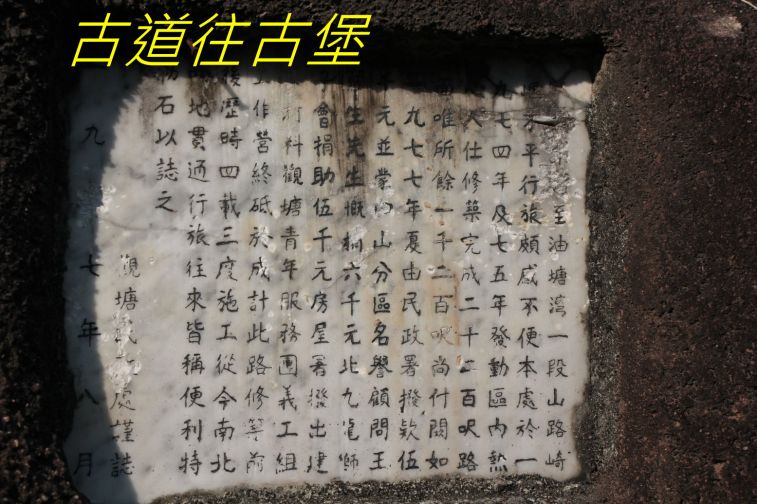 古道往古堡
至油塘灣一段山路崎
不平行旅頗感不便本處於一
九七四年及七五年發動區內熱
人仕修築完成二十二百呎路
唯所餘一千二百呎尚付闕如
九七七年夏由民政署撥款伍
元並蒙山分區名譽顧問王
生先生慨捐六千元北九龍獅
子會捐助伍千元房屋署撥出建
材料觀塘青年服務團義工組
工作營終砥於成計此路修築前
後歷時四載三度施工從今南北
地貫通行旅往來皆稱便利特
石以誌之
觀塘民政處謹誌
九七年八月